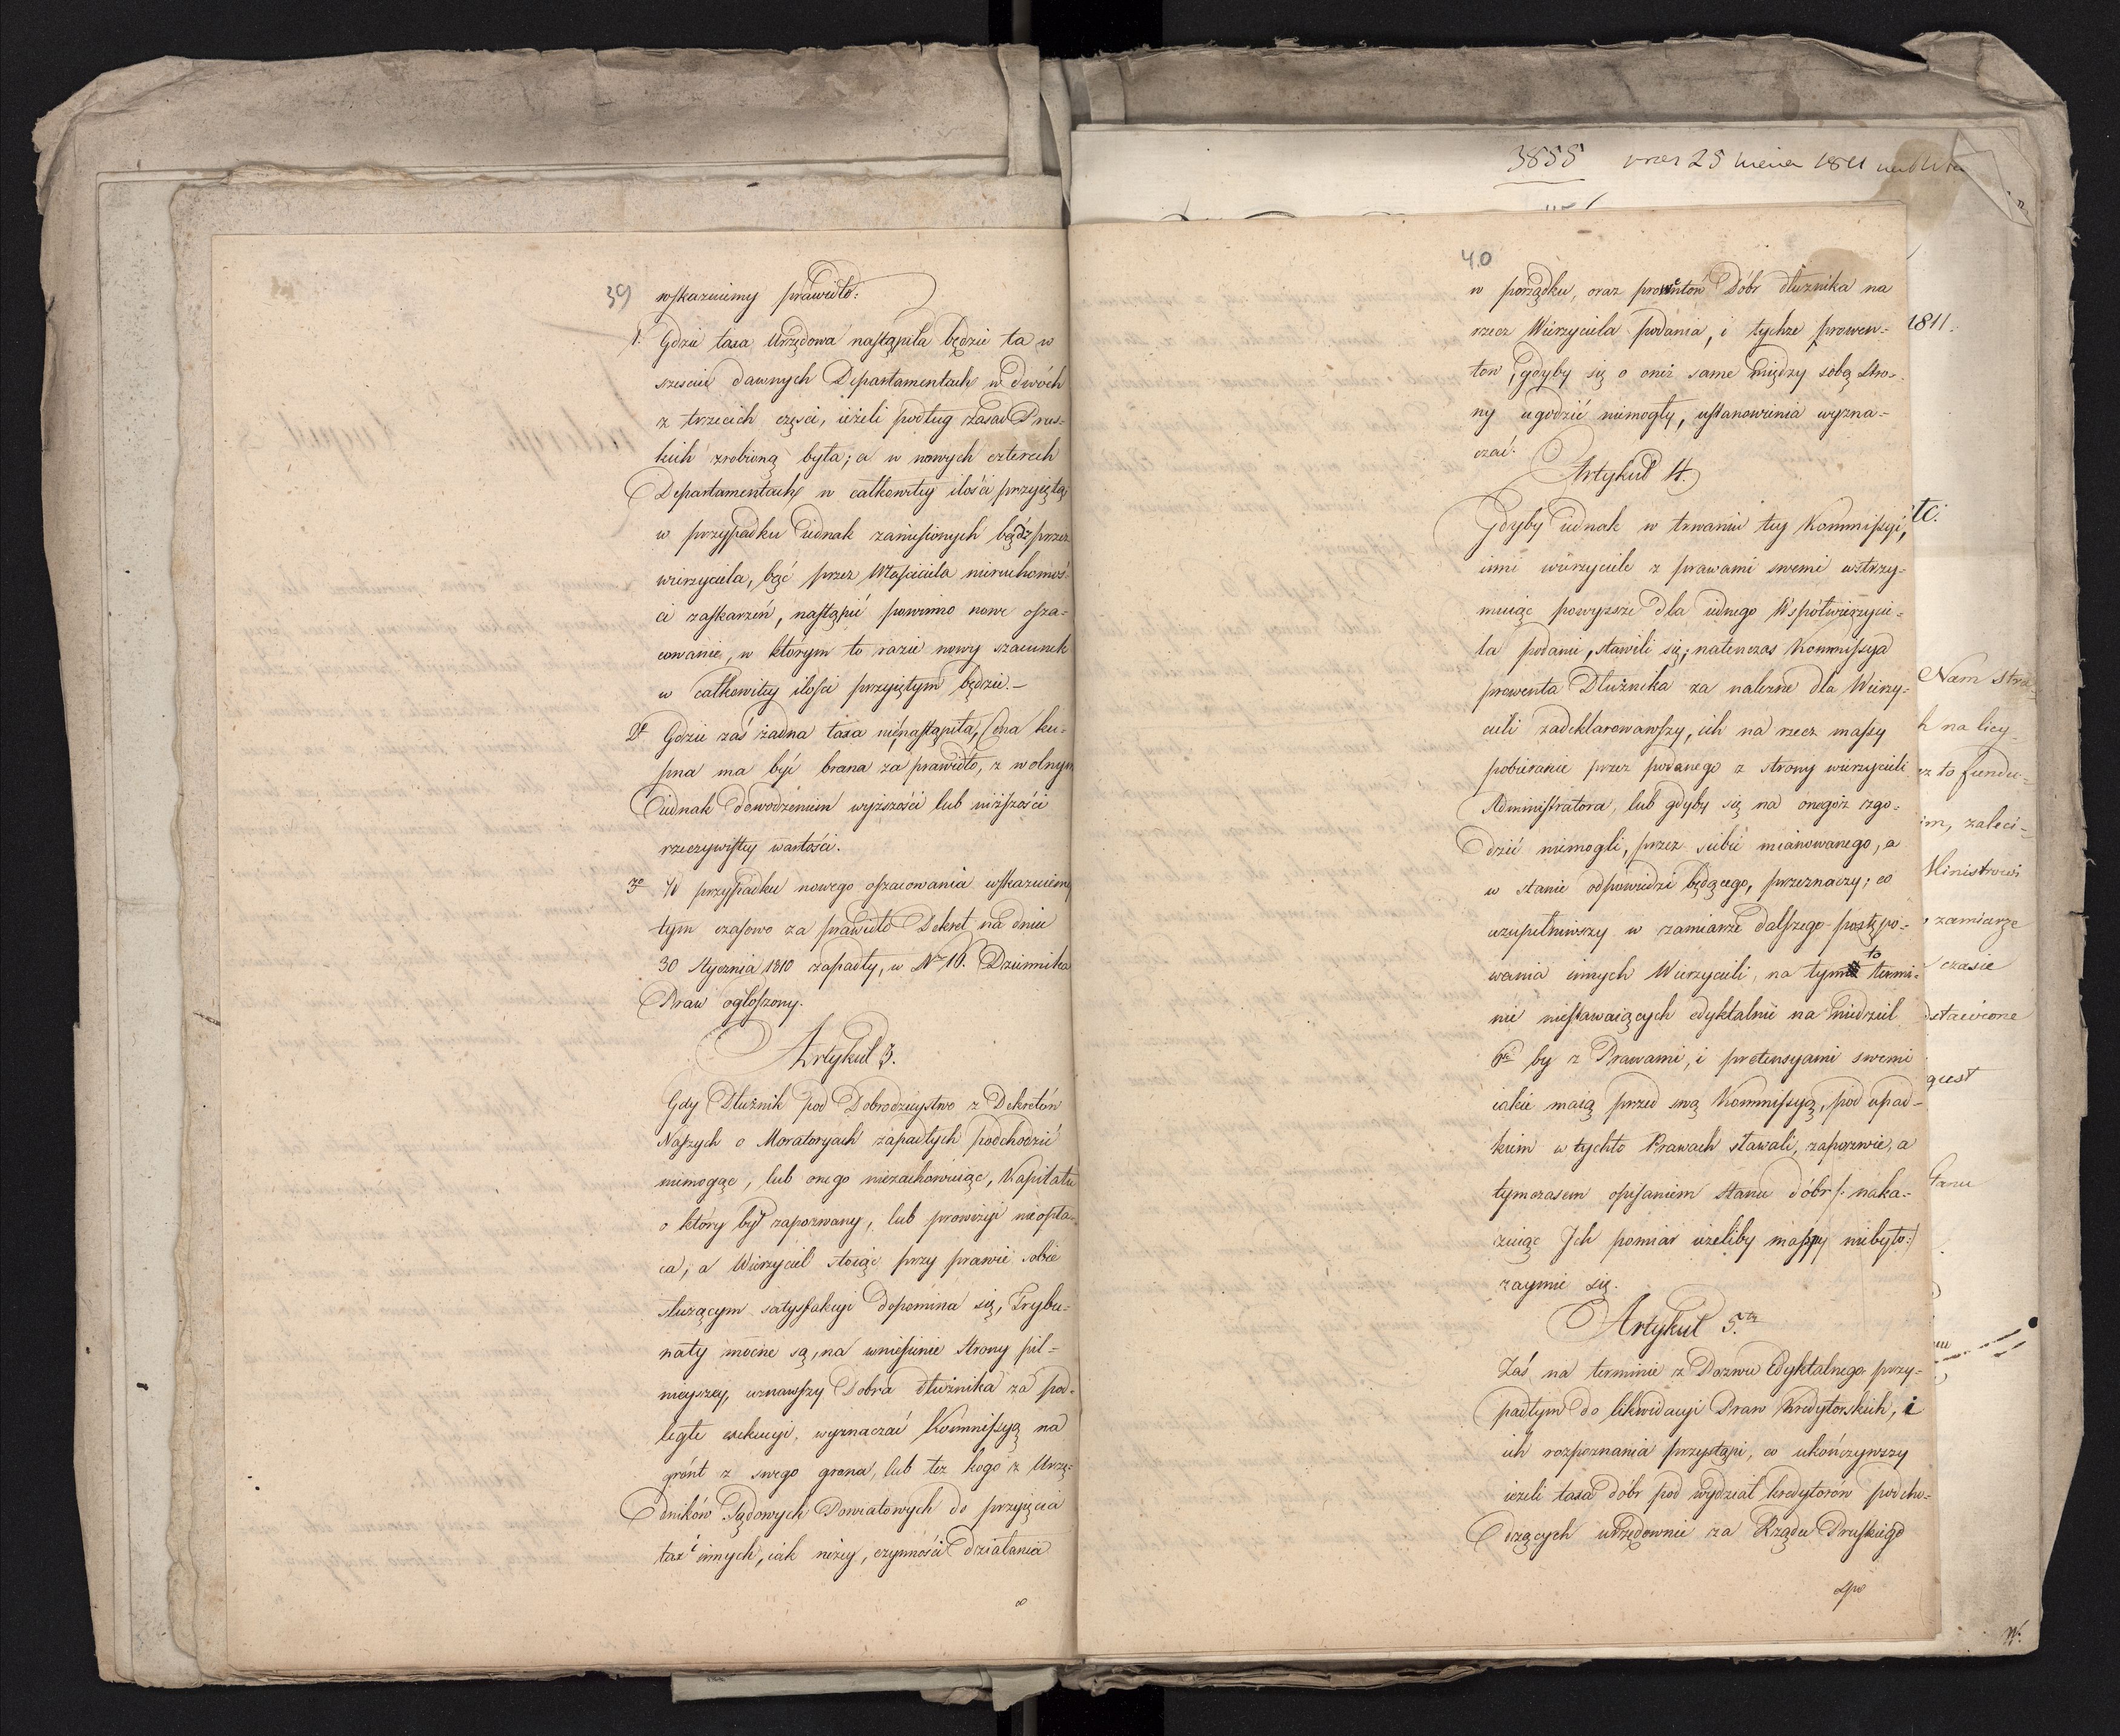 39
wskazuiemy prawidło:
1. Gdzie taxa Urzędowa nastąpiła będzie ta w
sześciu dawnych Departamentach w dwóch
z trzecich części, ieżeli podług zasad Prus-
kich zrobioną była; a w nowych czterech
Departamentach w całkowitey ilości przyiętą;
w przypadku iednak zaniesionych bądź przez
wierzyciela, bąć przez Właściciela nieruchomoś-
ci zaskarzeń, nastąpić powinno nowe osza-
cowanie, w którym to razie nowy szacunek
w całkowitey ilości przyiętym będzie.-
2o Gdzie zaś żadna taxa nienastąpiła, Cena ku-
pna ma być brana za prawidło, z wolnym
iednak dowodzeniem wyższości lub niższości
rzeczywistey wartości.
3o W przypadku nowego oszacowania wskazuiemy
tym czasowo za prawidło Dekret na dniu
30 Stycznia 1810 zapadły, w No 10. Dziennika
Praw ogłoszony.
Artykuł 3.
Gdy Dłużnik pod Dobrodzieystwo z Dekretów
Naszych o Moratoryach zapadłych podchodzić
niemogąc, lub onego niezachowuiąc, Kapitału
o który był zapozwany, lub prowizyi nieopła-
ca, a Wierzyciel stoiąc przy prawie sobie
służącym satysfakcyi dopomina się, Trybu-
nały mocne są, na wniesienie Strony pil-
nieyszey, uznawszy Dobra dłużnika za pod-
ległe exekucyi, wyznaczać Kommissyą na
grónt z swego grona, lub też kogo z Urzę-
dników Sądowych Powiatowych do przyięcia
tax i innych, iak niżey, czynności działania
w
3855
1811
40
w porządku, oraz prowentów Dóbr dłużnika na
rzecz Wierzyciela podania, i tychże prowen-
tow, gdyby się o onéż same między sobą stro-
ny ugodzić niemogły, ustanowienia wyzna-
czać:
Artykuł 4.
Gdyby iednak w trwaniu tey Kommissyi,
inni wierzyciele z prawami swemi wstrzy-
muiąc powyższe dla iednego Współwierzycie-
la podanie, stawili się; natenczas Kommissya
prowenta Dłużnika za należne dla Wierzy-
cieli zadeklarowawszy, ich na rzecz massy
pobieranie przez podanego z strony wierzycieli
Administratora, lub gdyby się na onegóż zgo-
dzić niemogli, przez siebie mianowanego, a
w stanie odpowiedzi będącego, przeznaczy; co
uzupełniwszy w zamiarze dalszego postępo-
wania innych Wierzycieli, na tym to termi-
nie niestawaiących edyktalnie na niedziel
by z Prawami, i pretensyami swemi
iakie maią przed swą Kommissyą, pod upad-
kiem w tychto Prawach stawali, zapozwie, a
tymczasem opisaniem stanu dóbr /: naka-
zuiąc Ich pomiar ieżeliby mappy niebyło:/
zaymie się.
Artykuł 5.ty
Zaś na terminie z Pozwu Edyktalnego przy-
padłym do likwidacyi Praw Kredytorskich, i
ich rozpoznania przystąpi, co ukończywszy
ieżeli taxa dóbr pod wydział kredytorów podcho-
dzących urzędownie za Rządu Pruskiego
1811.
tc:
Nam stra-
h na licy-
ez to fundu-
im, zaleci-
Ministrowi
zamiarze
czasie
dstawione
gust
W.